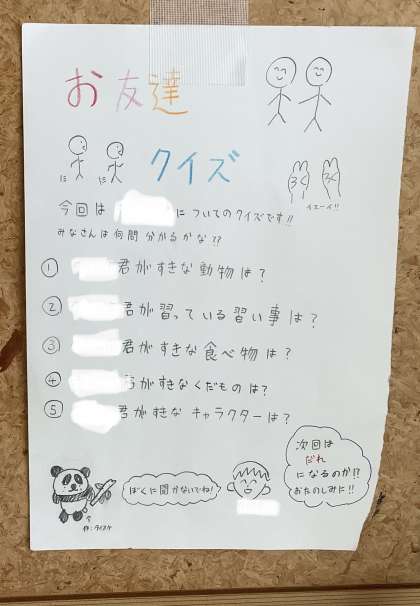 お友達
クイズ
イエーイ!!
今回は についてのクイズです!!
みなさんは何問分かるかな??
① 君がすきな動物は?
② 君が習っている習い事は?
③ 君がすきな食べ物は?
④ 君がすきなくだものは?
⑤ 君がすきなキャラクターは?
ぼくに聞かないでね!
次回は
だれ
になるのか!?
おたのしみに!!